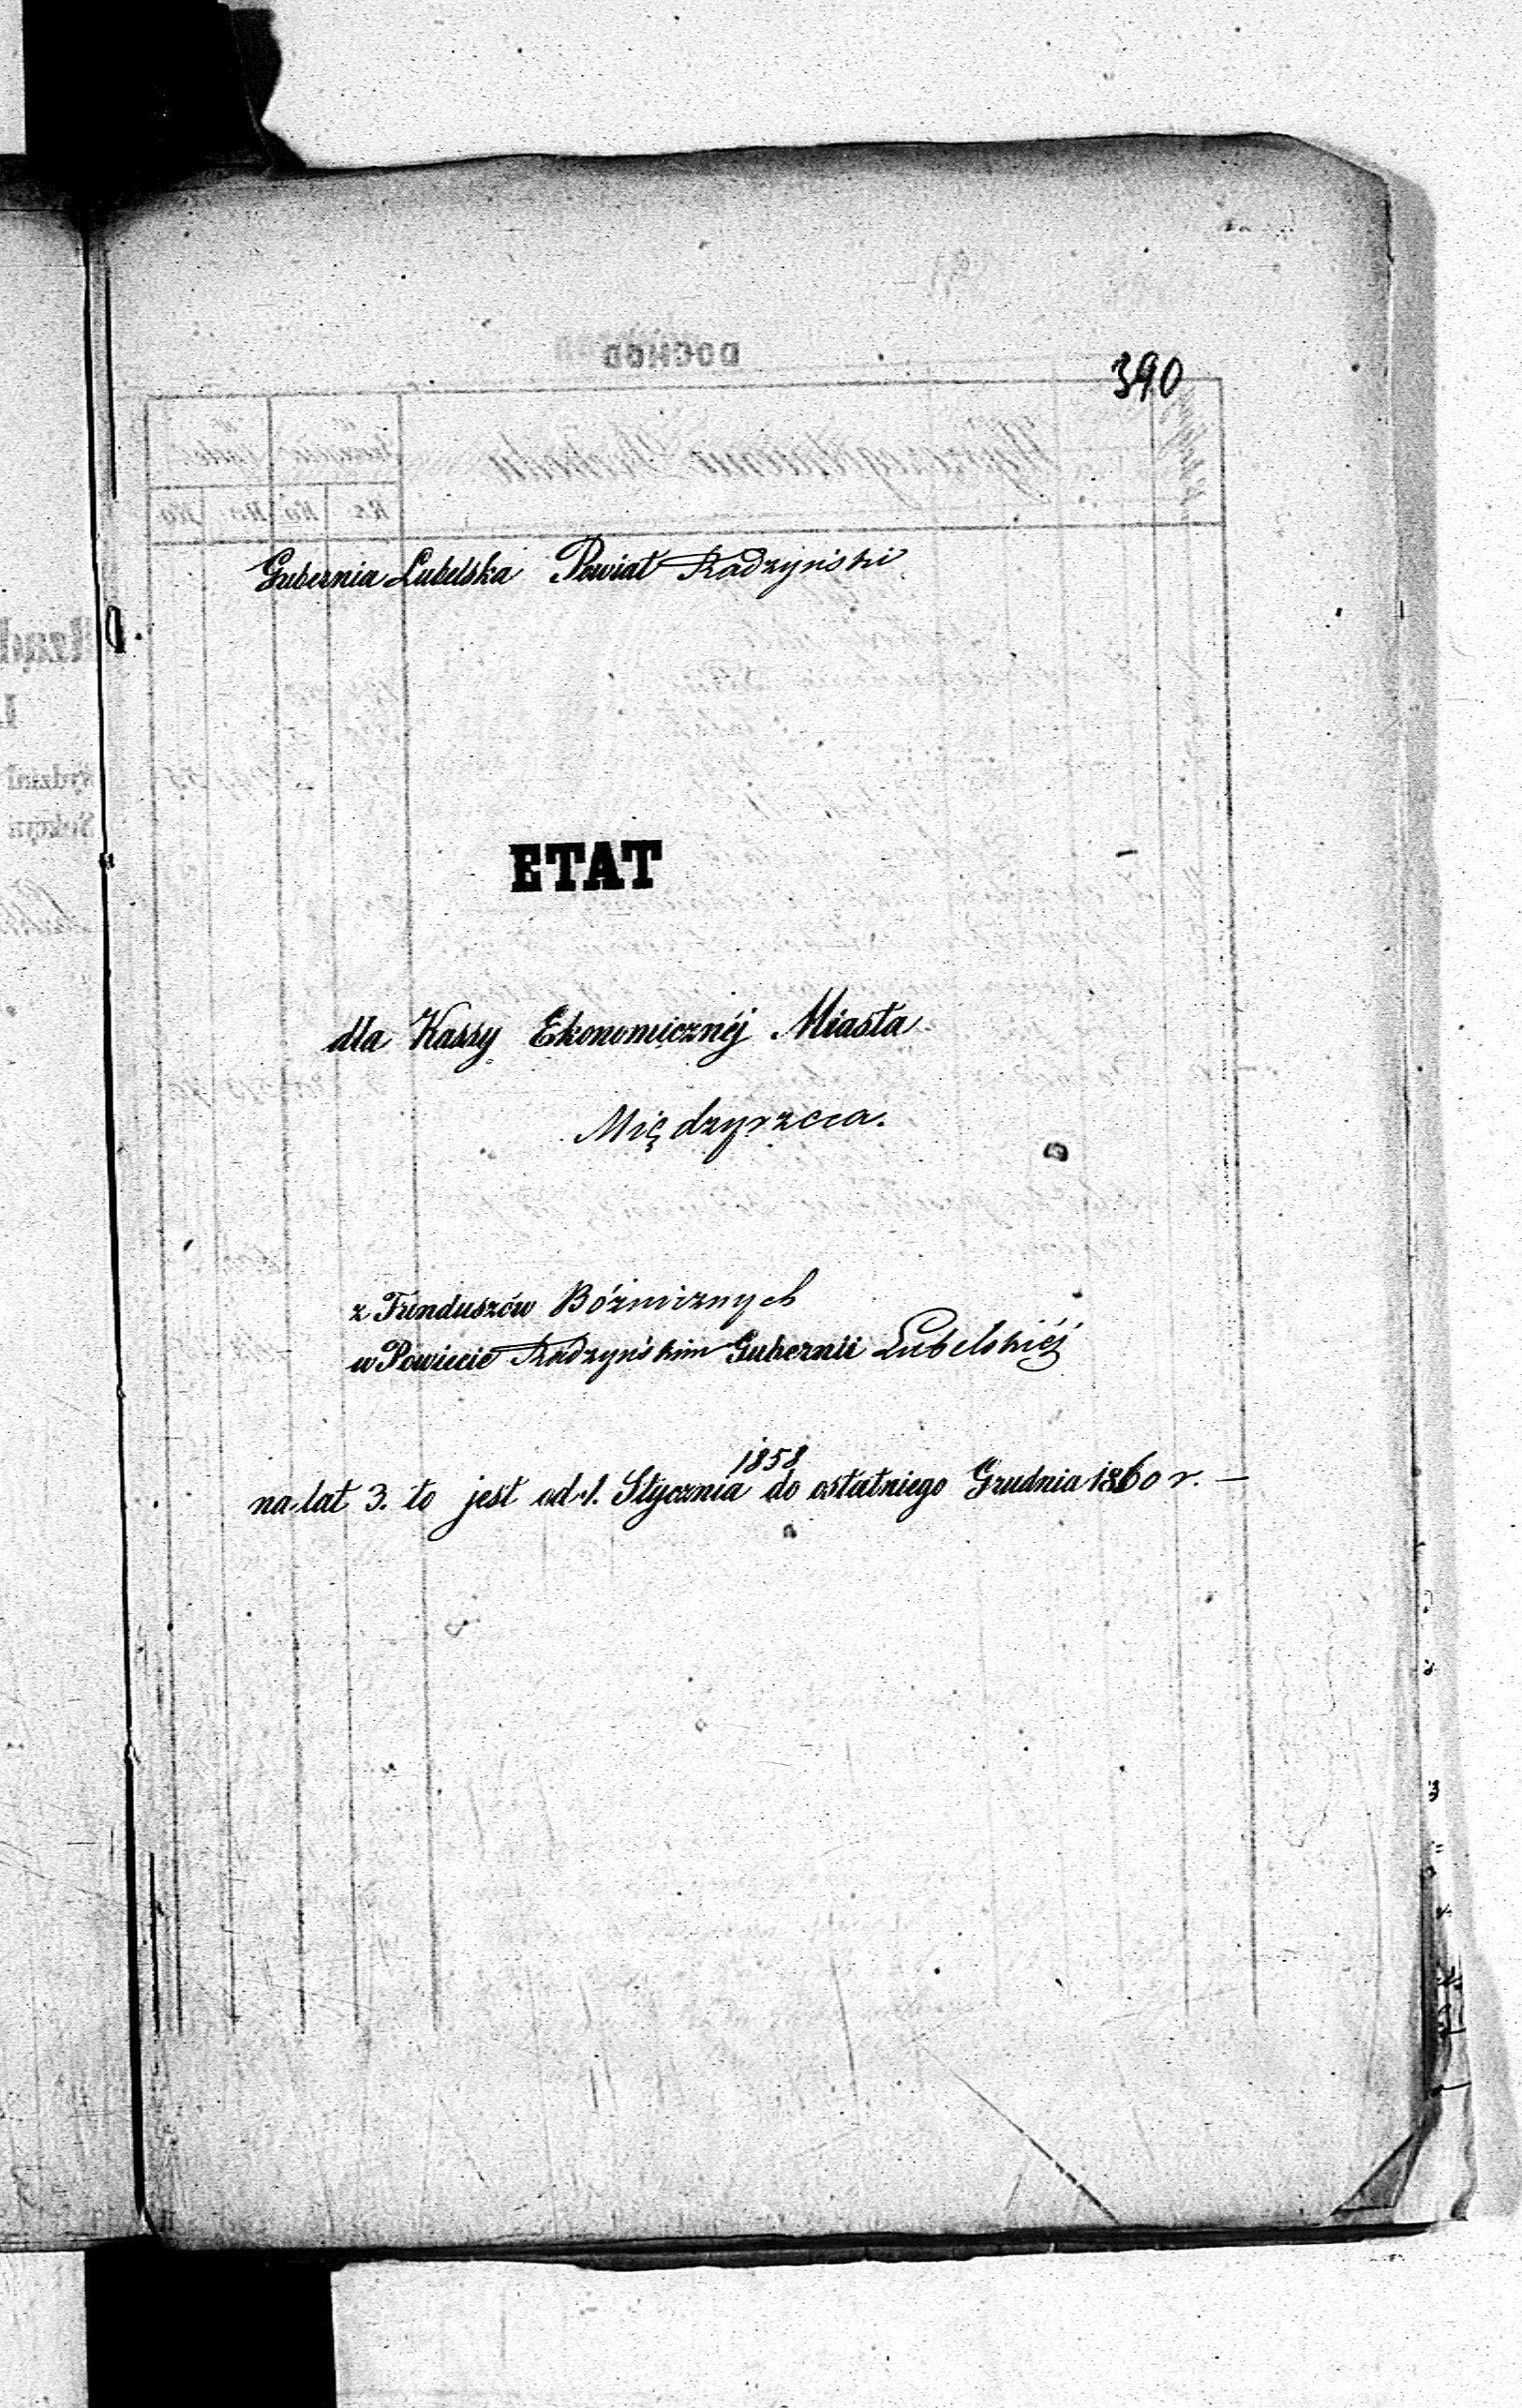 390
Gubernia Lubelska Powiat Radzyński
ETAT
dla Kassy Ekonomicznéj Miasta
Międzyrzeca.
z Funduszów Bóżnicznych
w Powiecie Radzyńskim Gubernii Lubelskiéj
1858
na lat 3. to jest od 1. Stycznia do ostatniego Grudnia 1860 r. —